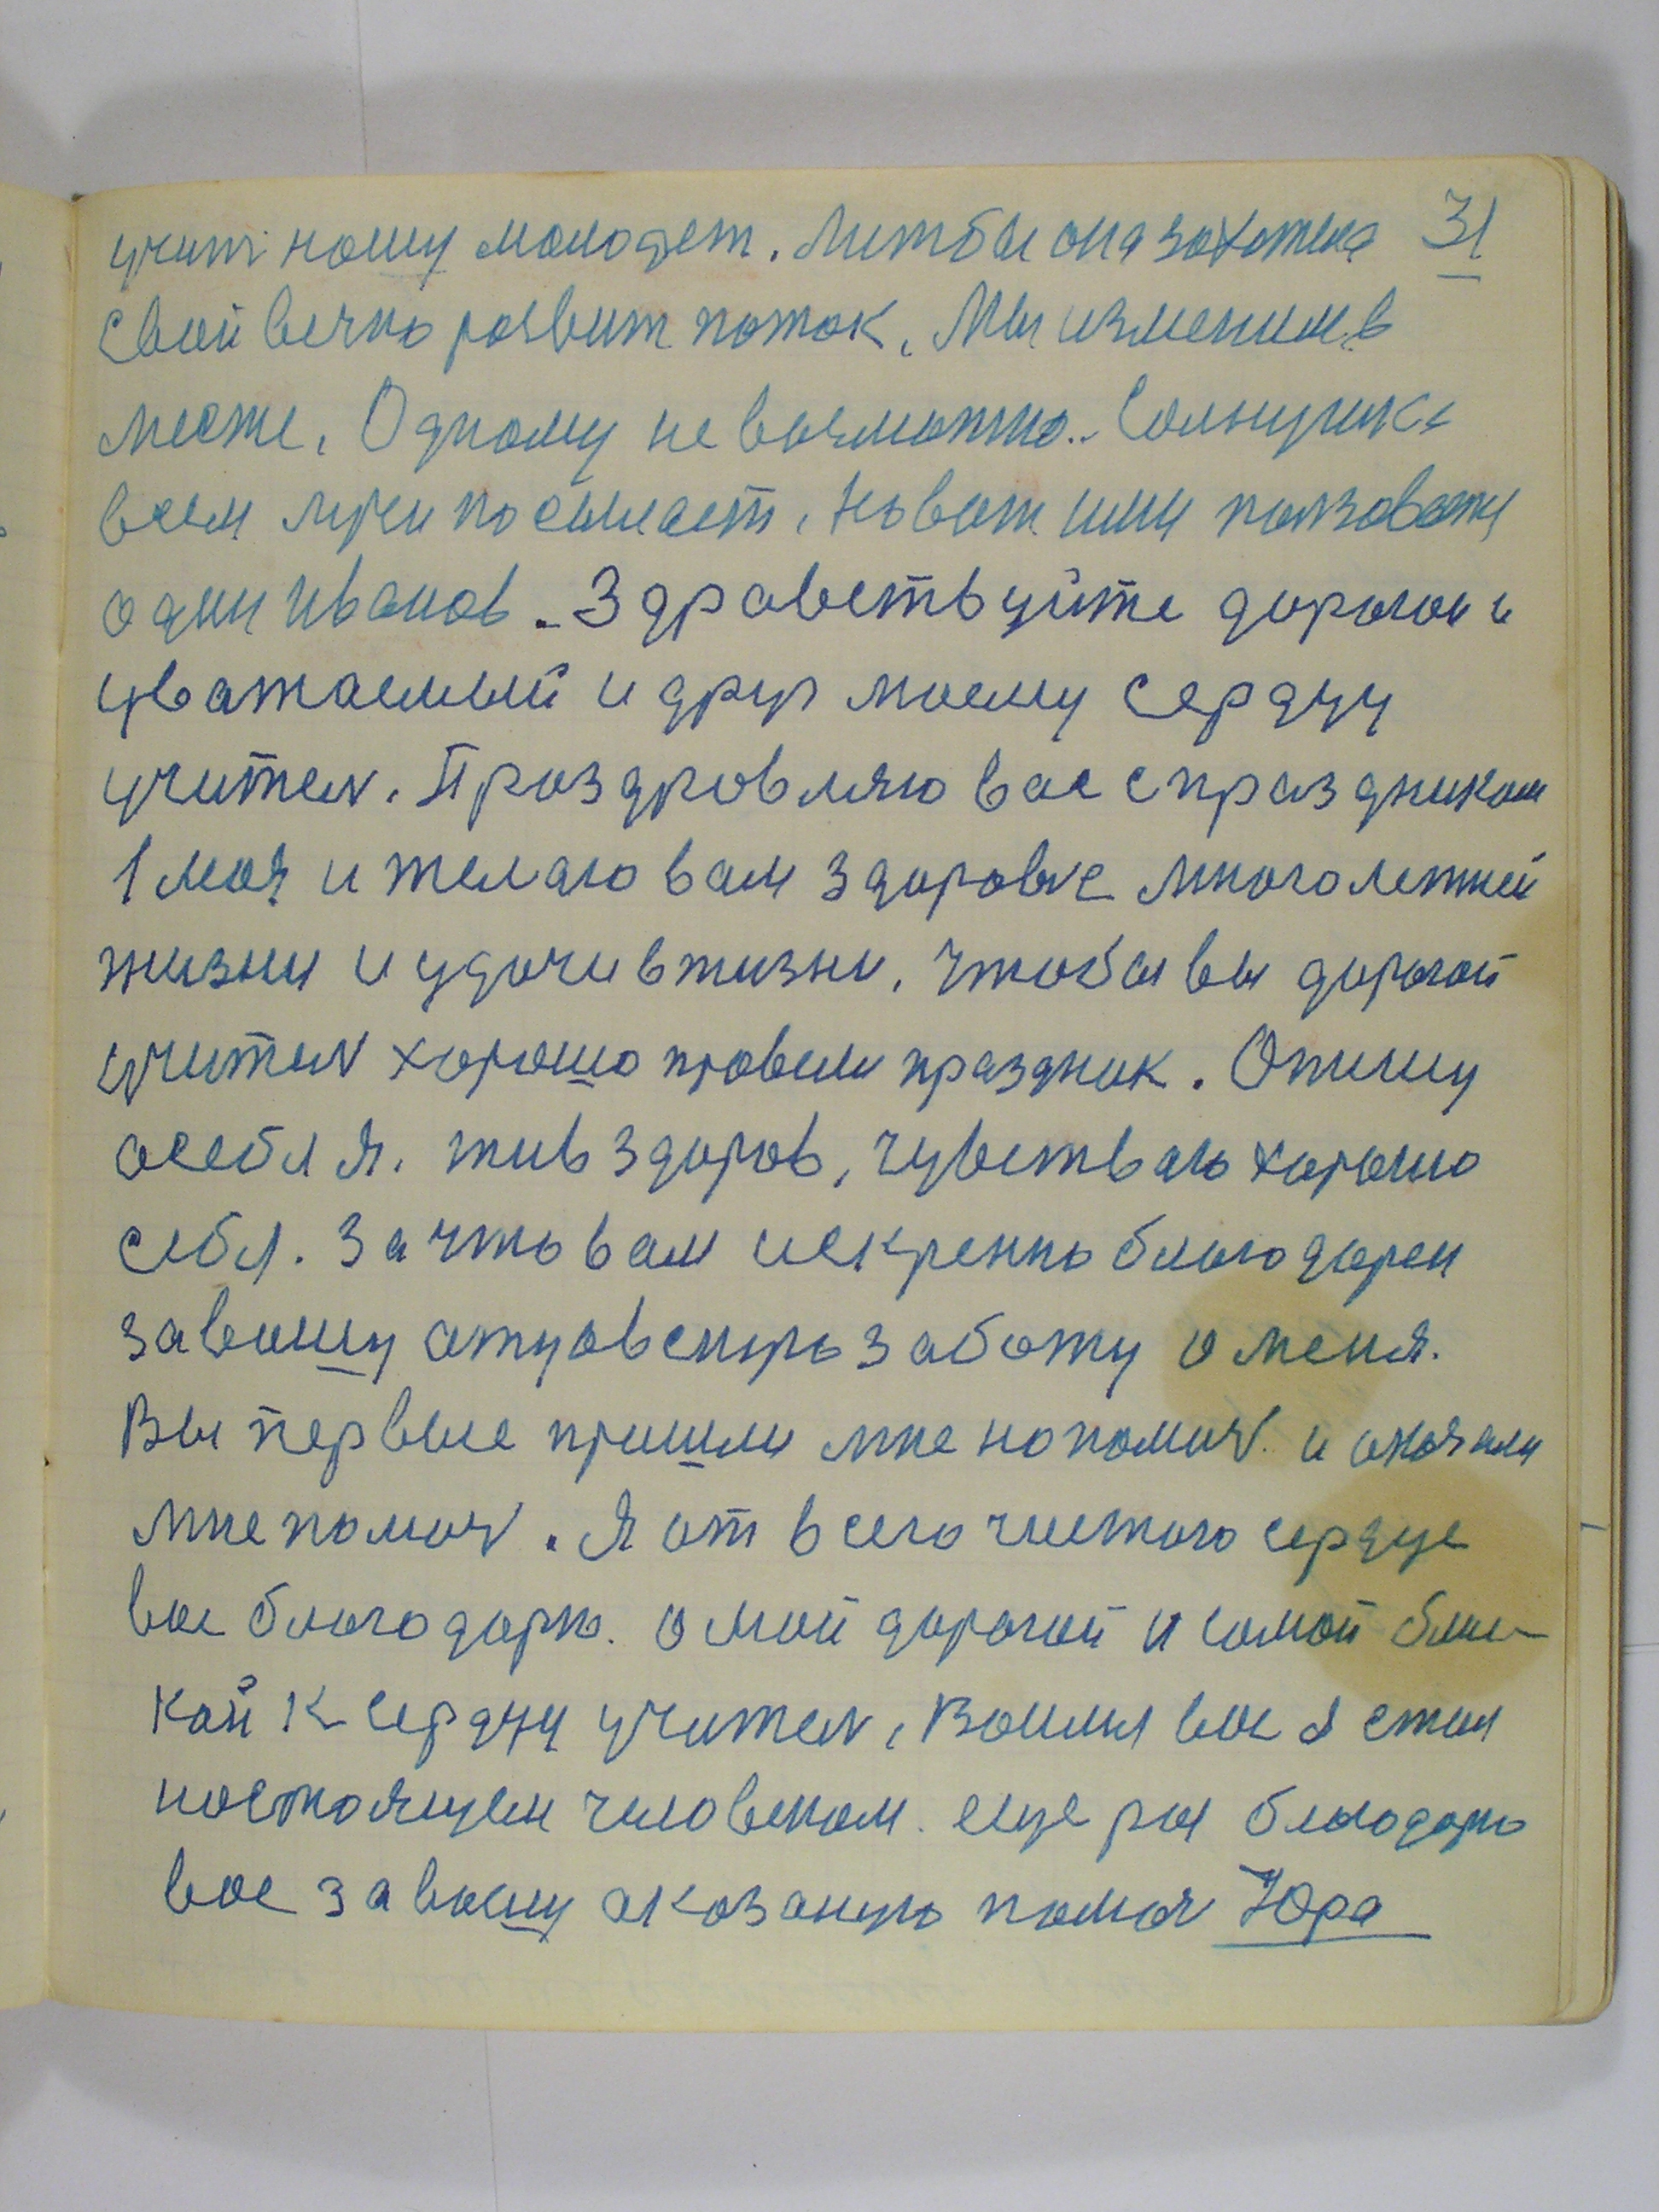 учит нашу молодет. Литбы она захотела 31
свой вечно развит поток. Мы изменим в
месте. Одному не возможно.. Солнушка
всем лучи посылает. Но вот ими ползоваты
один Иванов. Здравствуйте дорогои и
уватаемый и друг моему сердцу
учител. Праздровляю вас с праздником
1 мая и желаю вам здоровье многолетней
жизни и удачи в жизни, чтобы вы дорогой
учител хорошо провели праздник. Опишу
о себя я. жив здоров, чувстваю хорошо
себя. За что вам искренно благодарен
за вашу отцовскую заботу о меня.
Вы первые пришли мне на помич и оказали
мне помоч. Я от всего чистого сердце
вас благодарю. о мой дорогой и самой блис-
кай к сердцу учител, Возмля вас я стал
настоящем человеком. еще раз благодарю
вас за вашу аказаную помоч Юра